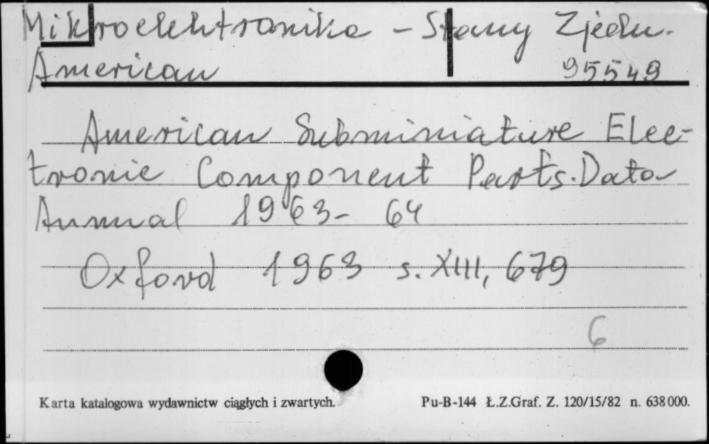 Mikroelektronika - Stany Zjedn.
American
95549
American Subminiature Elec-
tronic Component Parts. Data
Annual 1963-64
Oxford 1963 s. XIII, 679
6
Karta katalogowa wydawnictw ciągłych i zwartych.
Pu-B-144 Ł.Z.Graf. Z. 120/15/82 n. 638000.